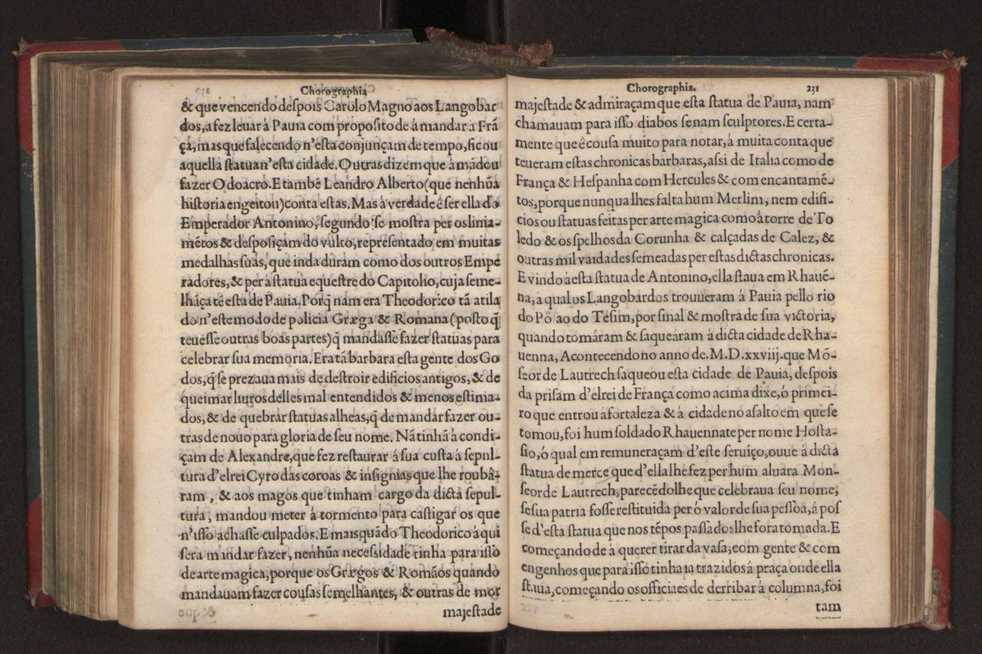 Chorographia
& que vencendo despois Carolo Magno aos Langobar
dos, a fez leuar à Pauia com proposito de á mandar a Frã
ça, mas que falecendo n'esta conjunçam de tempo, ficou
aquella statua n'esta cidade. Outras dizem que à mãdou
fazer Odoacro. E tambẽ Leandro Alberto (que nenhũa
historia engeitou) conta estas. Mas à verdade é ser ella do
Emperador Antonino, segundo se mostra per os linia-
mẽtos & desposiçam do vulto, representado em muitas
medalhas suas, que inda duram como dos outros Empe
radores, & per à statua equestre do Capitolio, cuja seme-
lhãça tẽ esta de Pauia. Porq̃ nam era Theodorico tã atila
do n'este modo de policia Græga & Romana (posto q̃
teuesse outras boas partes) q̃ mandasse fazer statuas para
celebrar sua memoria. Era tã barbara esta gente dos Go
dos, q̃ se prezaua mais de destroir edificios antigos, & de
queimar liuros delles mal entendidos & menos estima-
dos, & de quebrar statuas alheas, q̃ de mandar fazer ou-
tras de nouo para gloria de seu nome. Nã tinhã à condi-
çam de Alexandre, que fez restaurar á sua custa á sepul-
tura d'elrei Cyro das coroas & insignias que lhe roubã-
ram, & aos magos que tinham cargo da dicta sepul-
tura, mandou meter à tormento para castigar os que
n'isso achasse culpados. E mais quãdo Theodorico á qui
sera mandar fazer, nenhũa necessidade tinha para isso
de arte magica, porque os Grægos & Romãos quando
mandauam fazer cousas semelhantes, & outras de mor
majestade
Chorographia. 231
majestade & admiraçam que esta statua de Pauia, nam
chamauam para isso diabos senam sculptores. E certa-
mente que é cousa muito para notar, à muita conta que
teueram estas chronicas barbaras, assi de Italia como de
França & Hespanha com Hercules & com encantamẽ-
tos, porque nunqua lhes falta hum Merlim, nem edifi-
cios ou statuas feitas per arte magica como à torre de To
ledo & os spelhos da Corunha & calçadas de Calez, &
outras mil vaidades semeadas per estas dictas chronicas.
E vindo à esta statua de Antonino, ella staua em Rhauẽ-
na, a qual os Langobardos trouueram á Pauia pello rio
do Pó ao do Tesim, por sinal & mostra de sua victoria,
quando tomáram & saquearam á dicta cidade de Rha-
uenna, Acontecendo no anno de. M.D.xxviij. que Mõ-
seor de Lautrech saqueou esta cidade de Pauia, despois
da prisam d'elrei de França como acima dixe, ó primei-
ro que entrou á fortaleza & á cidade no asalto em que se
tomou, foi hum soldado Rhauennate per nome Hosta-
sio, ó qual em remuneraçam d'este seruiço, ouue á dicta
statua de merce que d'ella lhe fez per hum aluara Mon-
seor de Lautrech, parecẽdolhe que celebraua seu nome,
se sua patria fosse restituida per ó valor de sua pessoa, á pos
se d'esta statua que nos tẽpos passados lhe fora tomada. E
começando de à querer tirar da vasa, com gente & com
engenhos que para isso tinha ia trazidos á praça onde ella
staua, começando os officiaes de derribar á columna, foi
tam